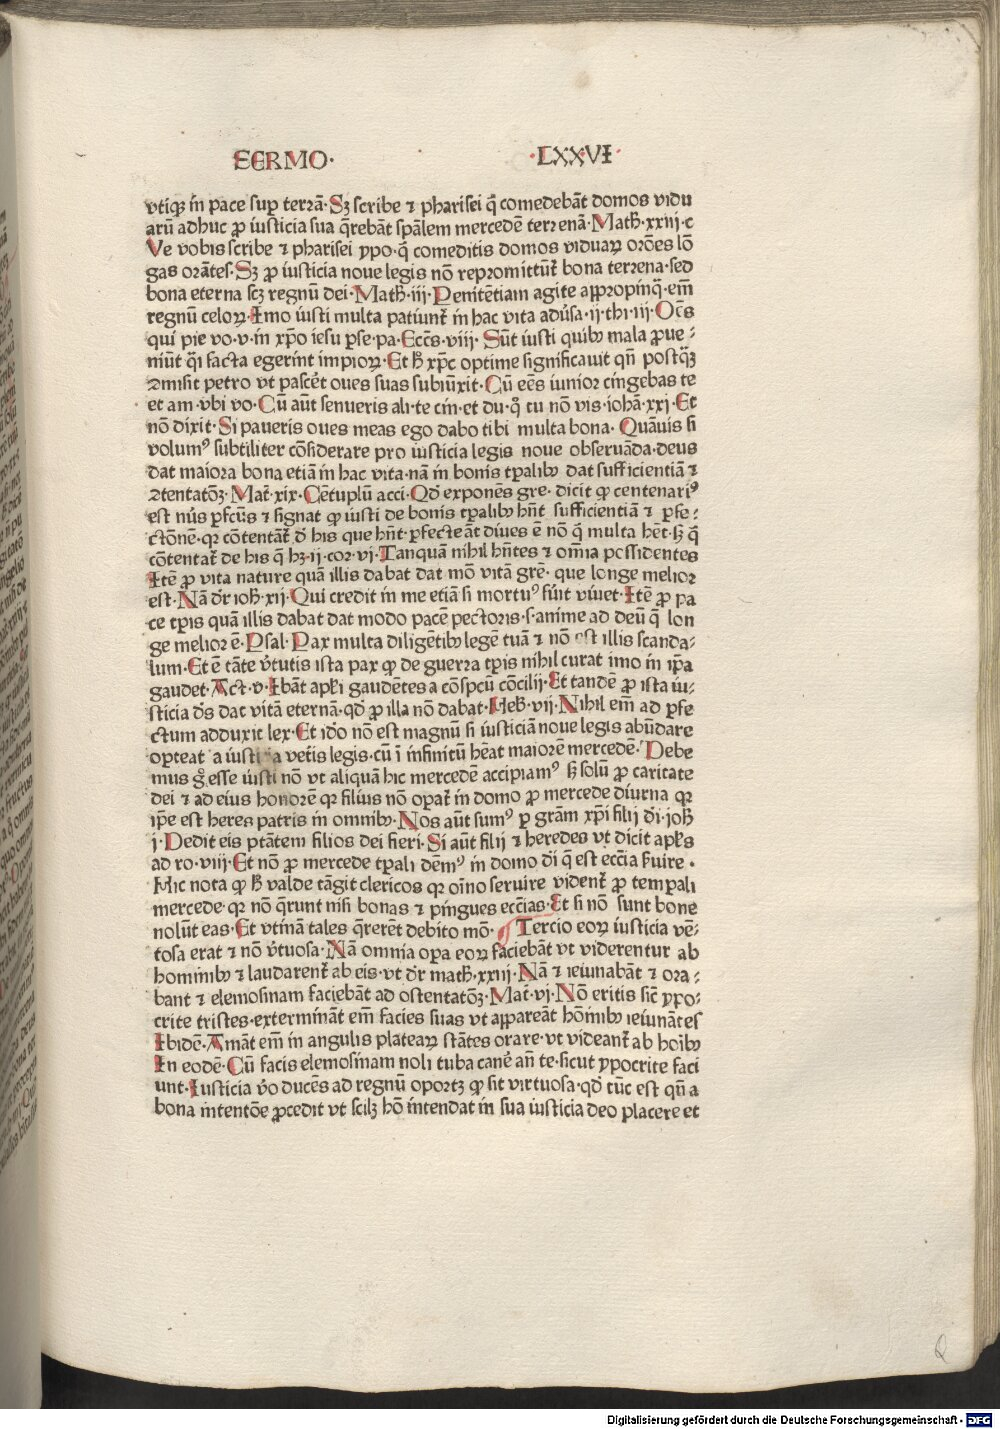 SERMO· ·LXXVI·
vtiqꝫ in pace suꝑ terrā·Sꝫ scribe ⁊ pharisei q̄ comedebāt domos vidu
arū adhuc ꝓ iusticia sua q̄rebāt spālem mercedē terrenā·Math̄·xxiij·c
Ve vobis scribe ⁊ pharisei ypo·q̄ comeditis domos viduaꝝ orōes lō
gas orātes·Sꝫ ꝓ iusticia noue legis nō repromittūt̄ bona terrena·sed
bona eterna scꝫ regnū dei·Math̄·iij·Penitētiam agite appropinq̄·em̄
regnū celoꝝ·Imo iusti multa patiunt̄ in hac vita adūsa·ij·thi·iij·Oc̄s
qui pie vo·v·in xp̄o iesu ꝑse·pa·Ecc̄s·viij· Sūt iusti quibꝰ mala ꝓue⸗
niūt q̄i facta egerint impioꝝ·Et h̄ xp̄c optime significauit qn̄ postq̄ꝫ
ꝯmisit petro vt pascēt oues suas subiūxit·Cū ees iunior cingebas te
et am·vbi vo·Cū aūt senueris ali·te cin·et du·q̊ tu nō vis·iohā·xxj·Et
nō dixit·Si paueris oues meas ego dabo tibi multa bona· Quāuis si
volumꝰ subtiliter cōsiderare pro iusticia legis noue obseruāda·deus
dat maiora bona etiā in hac vita·nā in bonis tꝑalibꝰ dat sufficientiā ⁊
ꝯtentatōꝫ·Mat̄·xix·Cētuplū acci·Qd̄ exponēs gre·dicit ꝙ centenariꝰ
est nūs ꝑfcūs ⁊ signat ꝙ iusti de bonis tꝑalibꝰ hn̄t sufficientiā ⁊ ꝑfe⸗
ctōnē·qꝛ cōtentāt̄ d̄ his que hn̄t·ꝑfecte āt diues ē nō q̄ multa het·sꝫ q̄
cōtentat̄ de his q̄ hꝫ·ij·cor·vj·Tanquā nihil hn̄tes ⁊ om̄ia possidentes
Itē ꝓ vita nature quā illis dabat dat mō vitā grē·que longe melior
est·Nā dr̄ ioh̄·xij·Qui credit in me etiā si mortuꝰ fūit viuet·Itē ꝓ pa
ce tꝑis quā illis dabat dat modo pacē pectoris·s·anime ad deū q̄ lon
ge melior ē·Psal·Pax multa diligētibꝰ legē tuā ⁊ nō est illis scanda⸗
lum·Et ē tāte v̄tutis ista pax ꝙ de guerra tꝑis nihil curat imo in ip̄a
gaudet·Act·v·Ibāt apl̄i gaudētes a cōspcū cōcilij·Et tandē ꝓ ista iu⸗
sticia d̄s dat vitā eternā·qd̄ ꝓ illa nō dabat·Heb̄·vij·Nihil em̄ ad ꝑfe
ctum adduxit lex·Et idō nō est magnū si iusticiā noue legis abūdare
oporteat a iusticia vetis legis·cū ī infinitū hēat maiorē mercedē·Debe
mus g̊ esse iusti nō vt aliquā hic mercedē accipiamꝰ sꝫ solū ꝓ caritate
dei ⁊ ad eius honorē qꝛ filius nō oꝑat̄ in domo ꝓ mercede diurna qꝛ
ip̄e est heres patris in omnibꝰ·Nos aūt sumꝰ ꝑ grām xp̄i filij d̄i·ioh̄
j·Dedit eis ptātem filios dei fieri·Si aūt filij ⁊ heredes vt dicit apl̄s
ad ro·viij·Et nō ꝓ mercede tꝑali dēmꝰ in domo d̄i q̄ est ecc̄ia ẜuire·
Hic nota ꝙ h̄ valde tāgit clericos qꝛ oīno seruire vident̄ ꝓ temꝑali
mercede·qꝛ nō q̄runt nisi bonas ⁊ pingues ecc̄ias·Et si nō sunt bone
nolūt eas·Et vtinā tales q̄rerēt debito mō· ¶Tercio eoꝝ iusticia vē⸗
tosa erat ⁊ nō v̄tuosa·Nā omnia oꝑa eoꝝ faciebāt vt viderentur ab
hominibꝰ ⁊ laudarent̄ ab eis·vt dr̄ math̄·xxiij·Nā ⁊ ieiunabāt ⁊ ora⸗
bant ⁊ elemosinam faciebāt ad ostentatōꝫ·Mat̄·vj·Nō eritis sic̄ ypo⸗
crite tristes·extermināt em̄ facies suas vt appareāt hōinibꝰ ieiunātes
Ibidē·Amāt em̄ in angulis plateaꝝ stātes orare·vt videant̄ ab hoībꝰ
In eodē·Cū facis elemosinam noli tuba canē an̄ te·sicut ypocrite faci
unt·Iusticia v̄o ducēs ad regnū oportꝫ ꝙ sit virtuosa·qd̄ tūc est qn̄ a
bona intentōe ꝓcedit vt scilꝫ hō intendat in sua iusticia deo placere et
Q
Digitalisierung gefördert durch die Deutsche Forschungsgemeinschaft · DFG